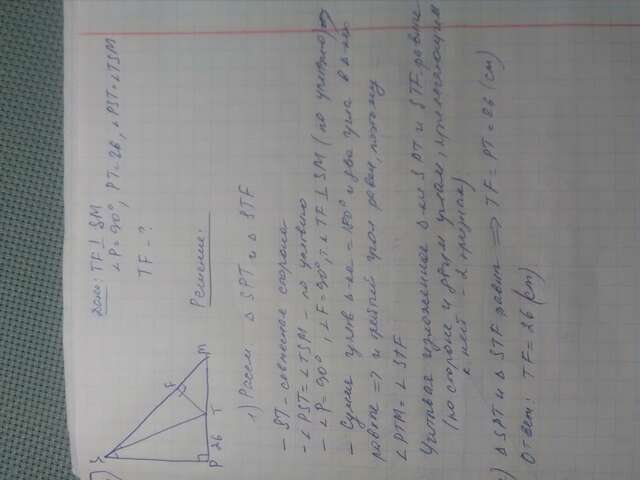 S
F
P 26 T M
Дано: TF ⊥ SM
∠P = 90°, PT = 26, ∠PST = ∠TSM
TF - ?
Решение:
1) Рассм △ SPT и △ STF
- ST - совместная сторона
- ∠PST = ∠TSM - по условию
- ∠P = 90°, ∠F = 90°, т.к. TF ⊥ SM (по условию) =>
- Сумма углов △-ка = 180° и два угла в △-ках
равны => и третий угол равен, поэтому
∠PTM = ∠STF
Учитывая изложенное △-ки SPT и STF равны
(по стороне и двум углам, прилегающим
к ней - 2 признак)
2) △ SPT и △ STF равны => TF = PT = 26 (см)
Ответ: TF = 26 (см)